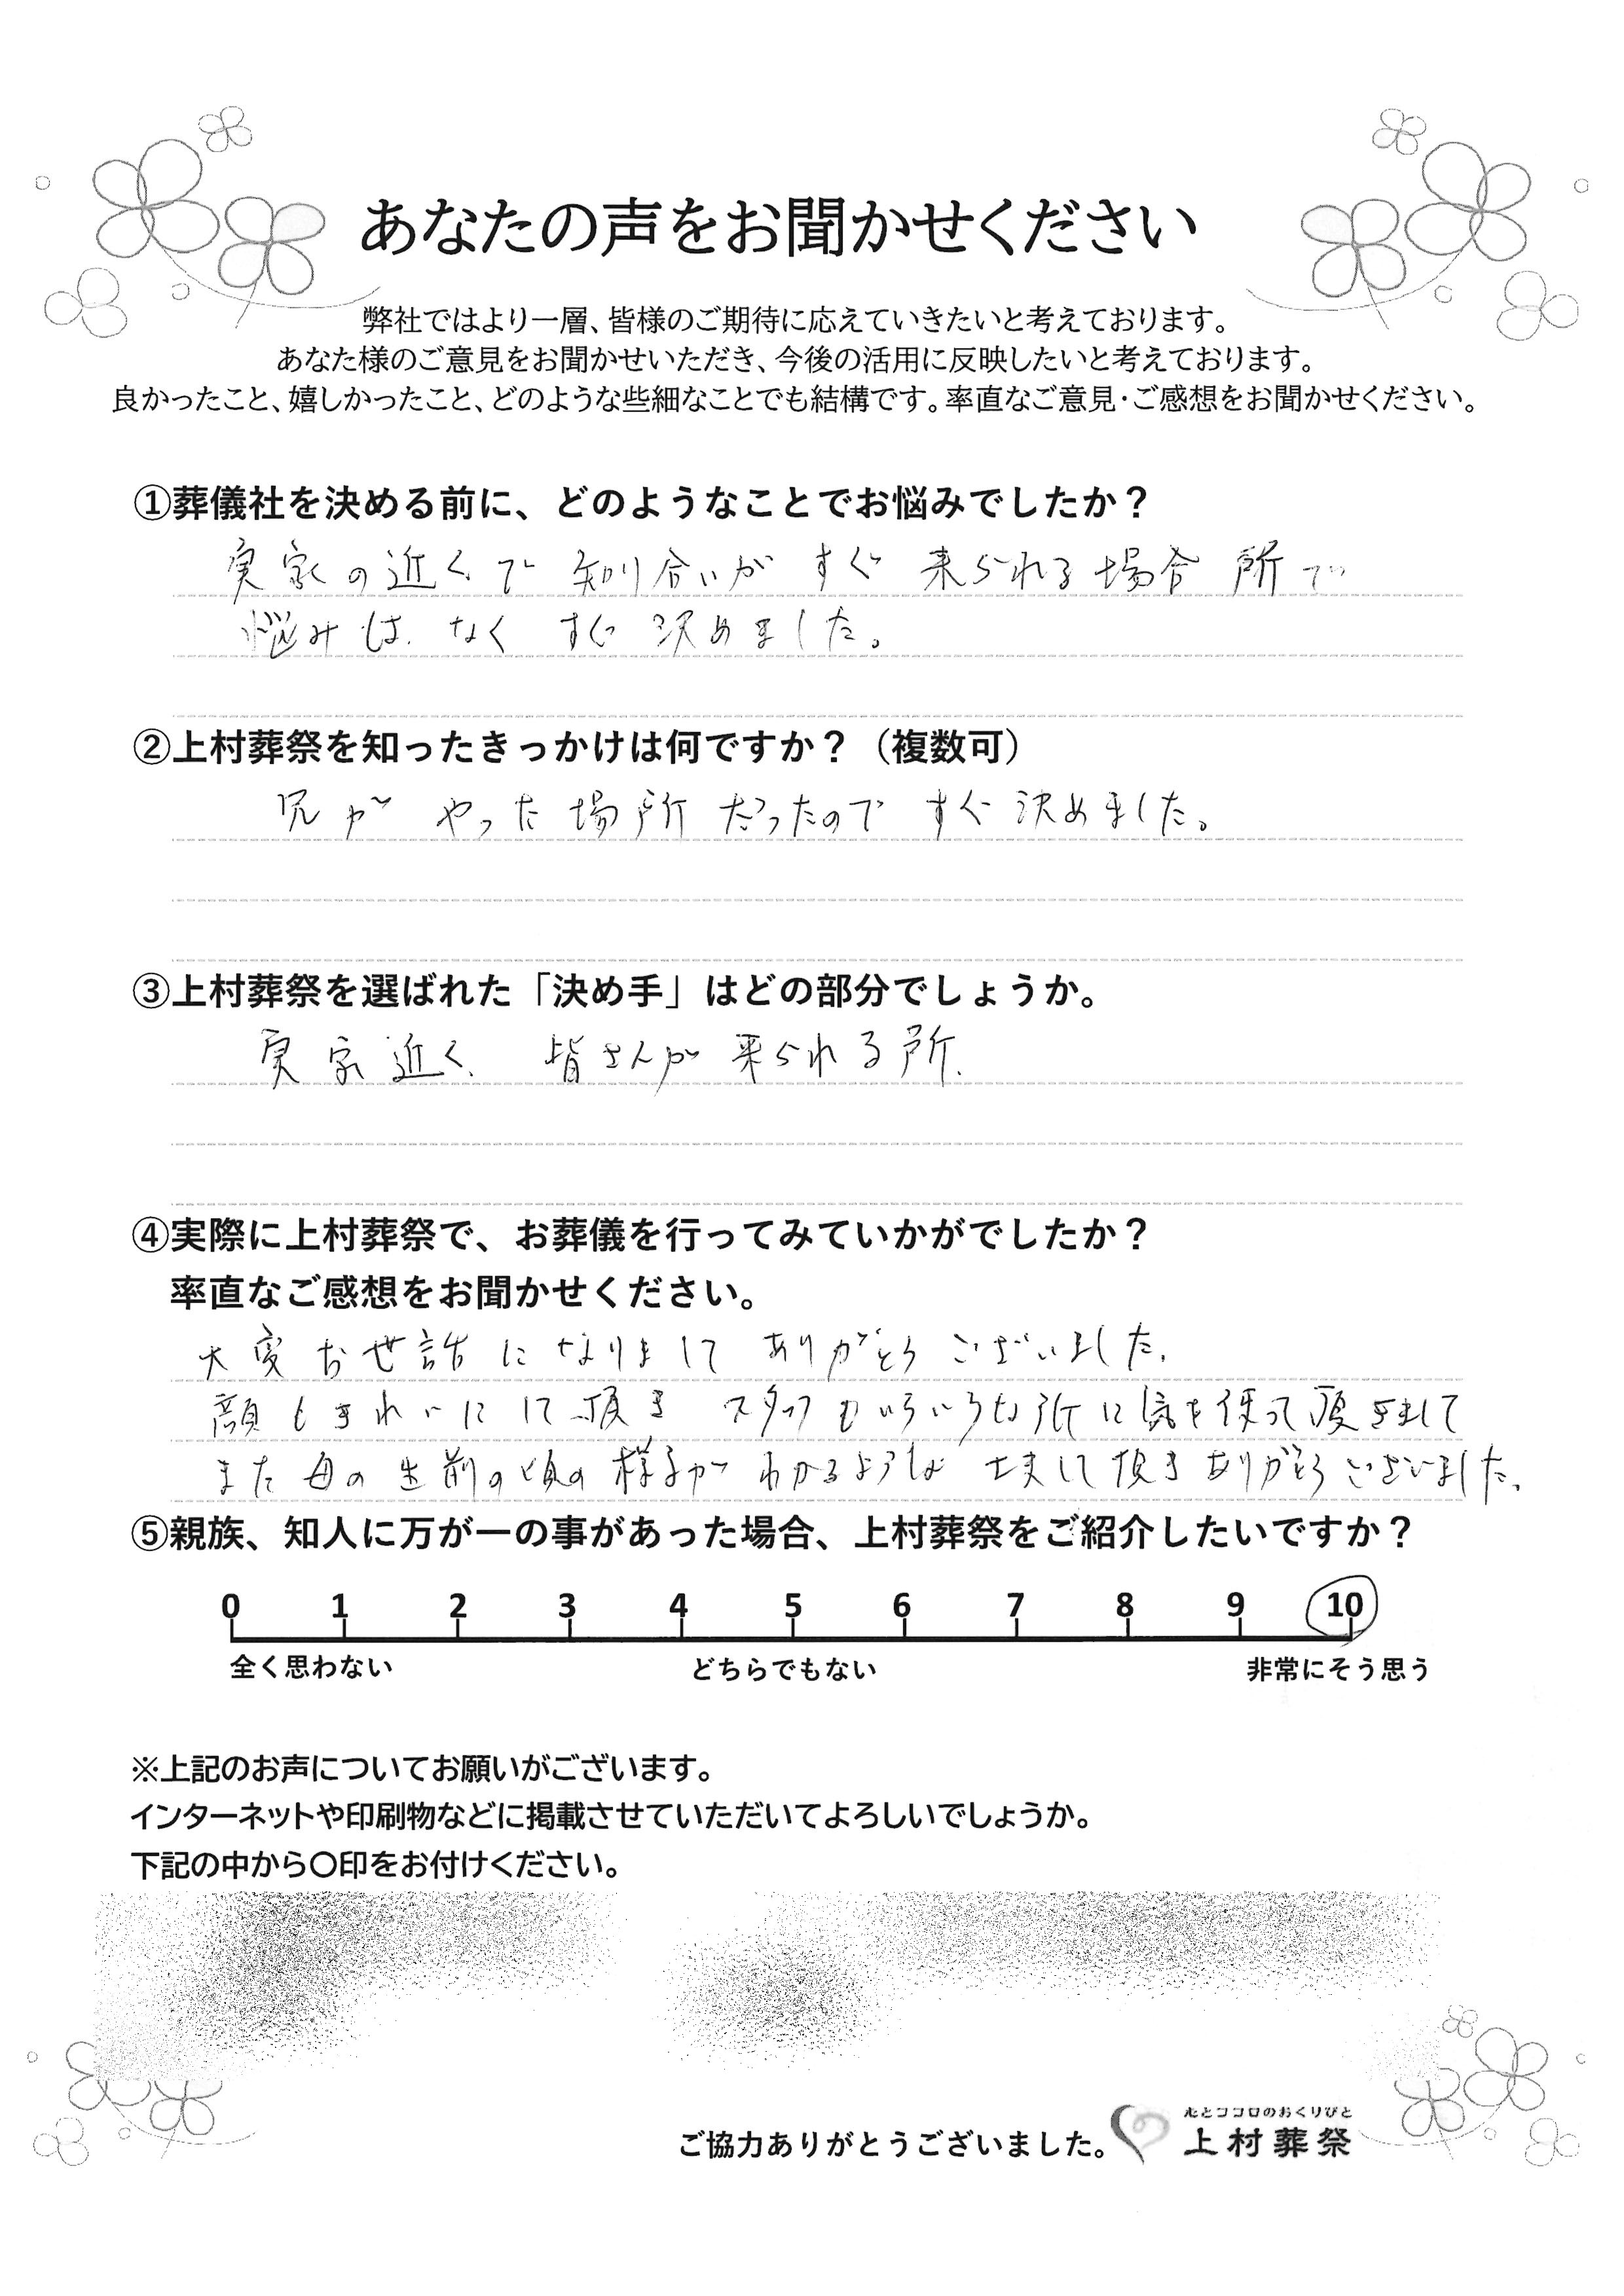 あなたの声をお聞かせください
弊社ではより一層、皆様のご期待に応えていきたいと考えております。
あなた様のご意見をお聞かせいただき、今後の活用に反映したいと考えております。
良かったこと、嬉しかったこと、どのような些細なことでも結構です。率直なご意見・ご感想をお聞かせください。
①葬儀社を決める前に、どのようなことでお悩みでしたか？
実家の近くで 知り合いが すぐ 来られる場合 所で
悩みは なく すぐ 決めました。
②上村葬祭を知ったきっかけは何ですか？（複数可）
兄が やった 場所 だったので すぐ 決めました。
③上村葬祭を選ばれた「決め手」はどの部分でしょうか。
実家 近く 皆さんが 来られる所.
④実際に上村葬祭で、お葬儀を行ってみていかがでしたか？
率直なご感想をお聞かせください。
大変 お世話 に なりまして ありがとう ございました.
顔もきれいにして頂き スタッフもいろいろな所に気を使って頂きまして
また 母の 生前の頃の 様子が わかるような 工夫して 頂き ありがとう ございました.
⑤親族、知人に万が一の事があった場合、上村葬祭をご紹介したいですか？
0 1 2 3 4 5 6 7 8 9 10
全く思わない どちらでもない 非常にそう思う
※上記のお声についてお願いがございます。
インターネットや印刷物などに掲載させていただいてよろしいでしょうか。
下記の中から〇印をお付けください。
ご協力ありがとうございました。
心とココロのおくりびと
上村葬祭